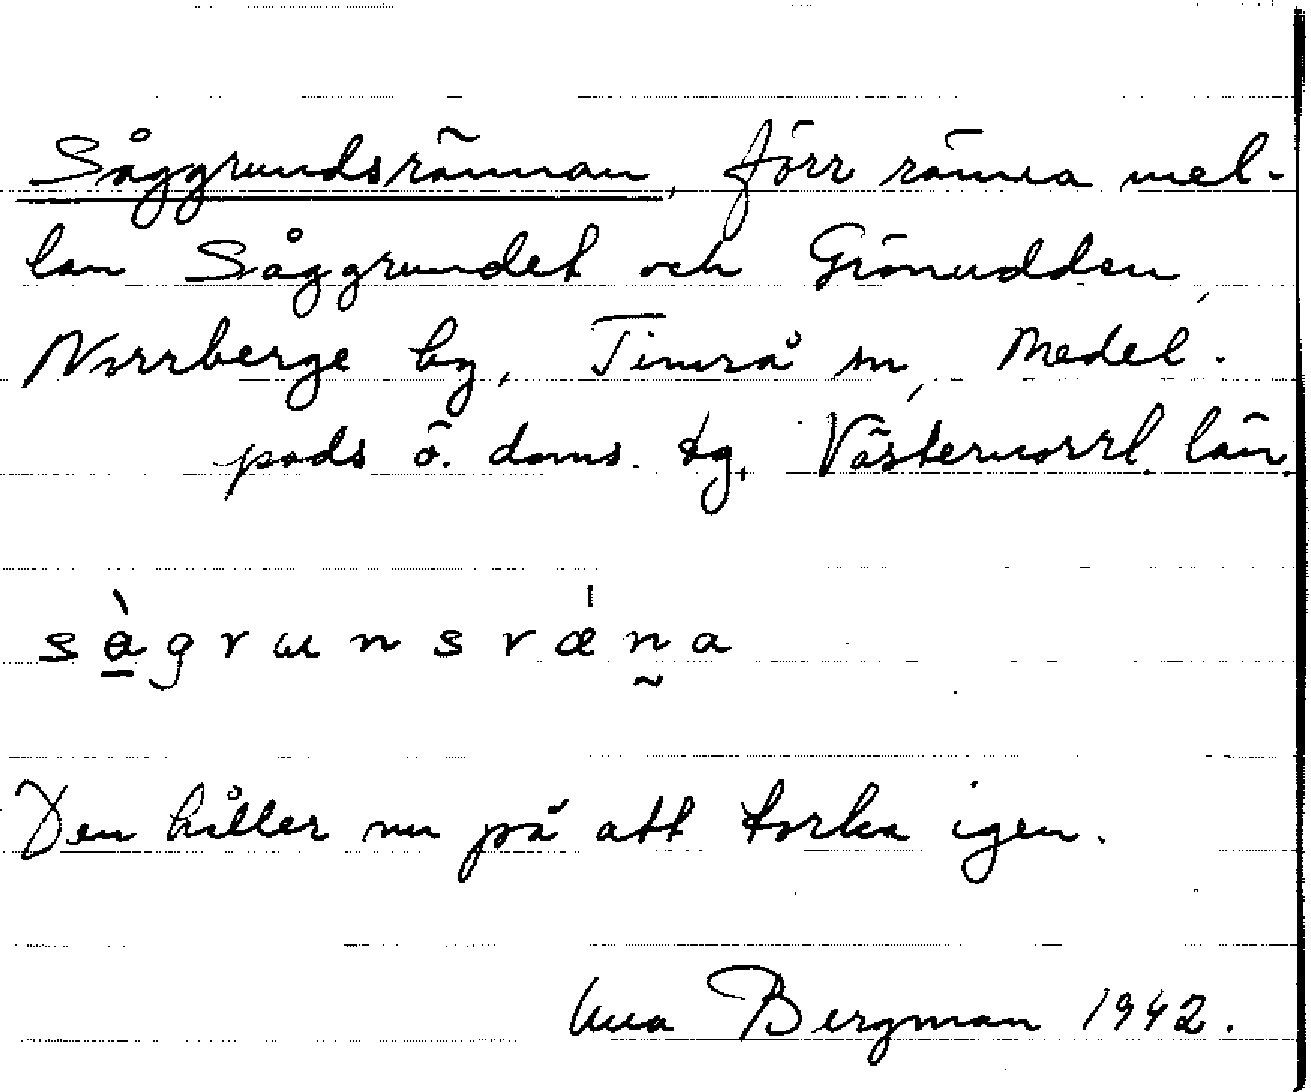 Såggrundsrännan, förr ränna mel-
lan Såggrundet och Grönudden,
Norrberge by, Timrå sn, Medel-
pads ö. doms. tg, Västernorrl. län.
sàgrɯnsrǽn̰a
Den håller nu på att torka igen.
Bergman 1942.